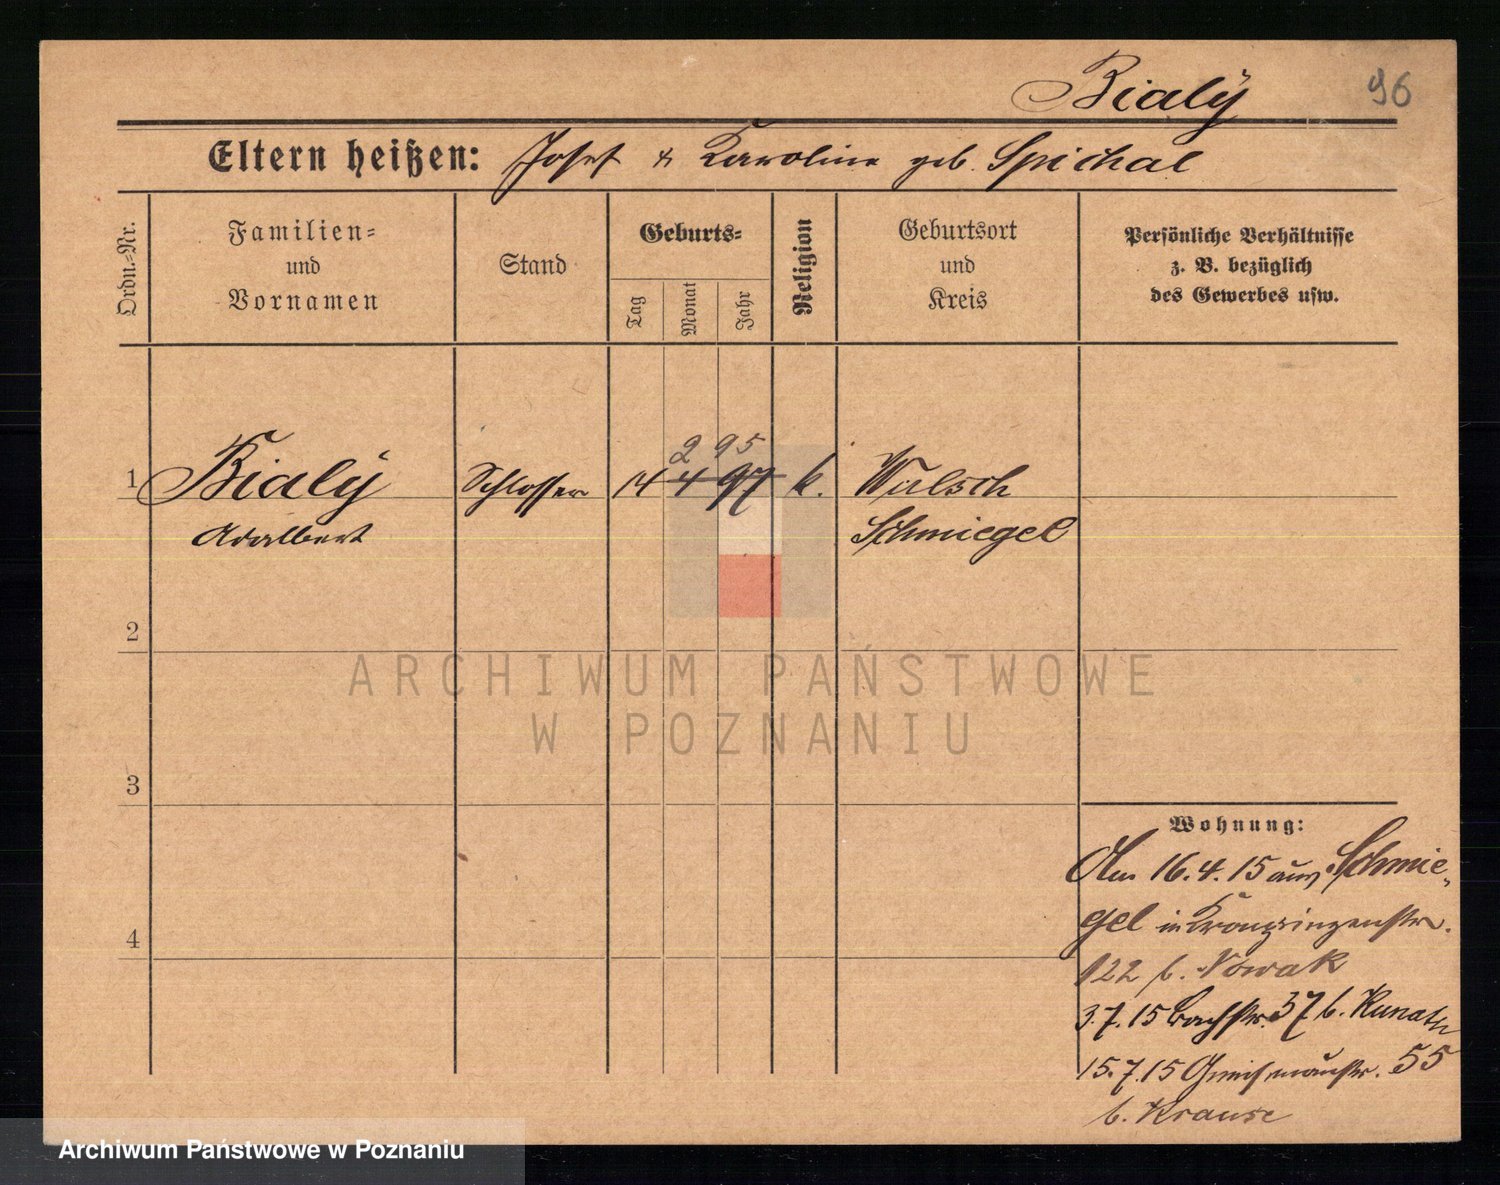 Bialÿ 96
Eltern heißen: Josef & Karoline geb. Spichal
Ordn.-Nr.
Familien-
und
Vornamen
Stand
Geburts-
Tag
Monat
Jahr
Religion
Geburtsort
und
Kreis
Persönliche Verhältnisse
z. B. bezüglich
des Gewerbes usw.
2 95
1 Bialÿ Schlosser 14 4 97 k. Wulsch
Adalbert Schmiegel
2
3
4
ARCHIWUM PAŃSTWOWE
W POZNANIU
Wohnung:
Am 16.4.15 aus Schmie-
gel in Kronprinzenstr.
122 b. Nowak
3.7.15 Bachstr. 37 b. Kunath
15.7.15 55
b. Krause
Archiwum Państwowe w Poznaniu